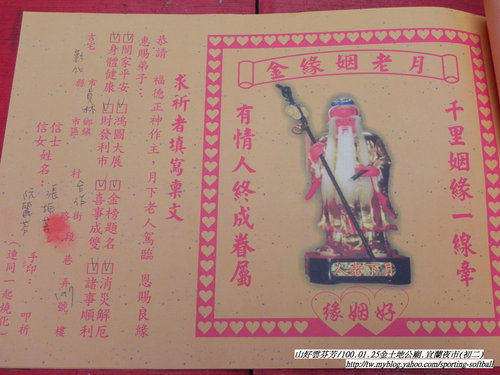 月老姻緣金
千里姻緣一線牽
有情人終成眷屬
月下老人
好姻緣
求祈者填寫稟文
恭請 福德正神作主,月下老人駕臨 恩賜良緣
惠賜弟子:
闔家平安 鴻圖大展 金榜題名 消災解厄
身體健康 財發利市 喜事成雙 諸事順利
吉宅 彰化 縣市 員林 鄉鎮市區 村 街路 段 巷 弄 號 樓
信士信女姓名:張
手印: 叩祈
(連同一起燒化)
山好雲芬芳/100.01.25金土地公廟.宜蘭夜市(初二)
http://tw.myblog.yahoo.com/sporting-softball